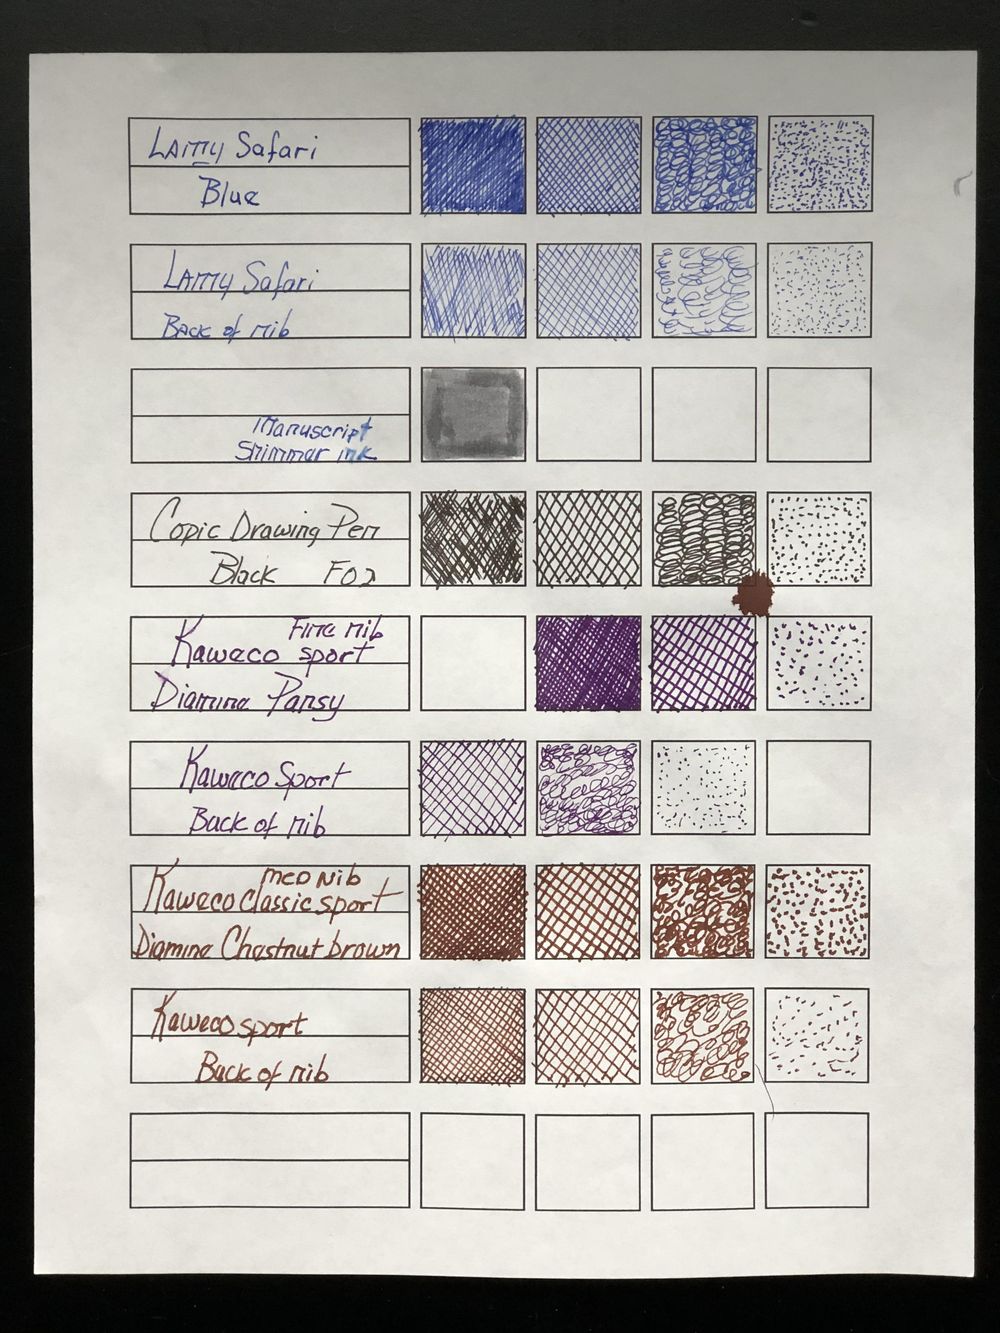 Lamy Safari
Blue
Lamy Safari
Back of nib
Manuscript
Shimmer ink
Copic Drawing Pen
Black F02
Fine nib
Kaweco sport
Diamine Pansy
Kaweco Sport
Back of nib
med Nib
Kaweco Classic sport
Diamine Chestnut brown
Kaweco sport
Back of nib